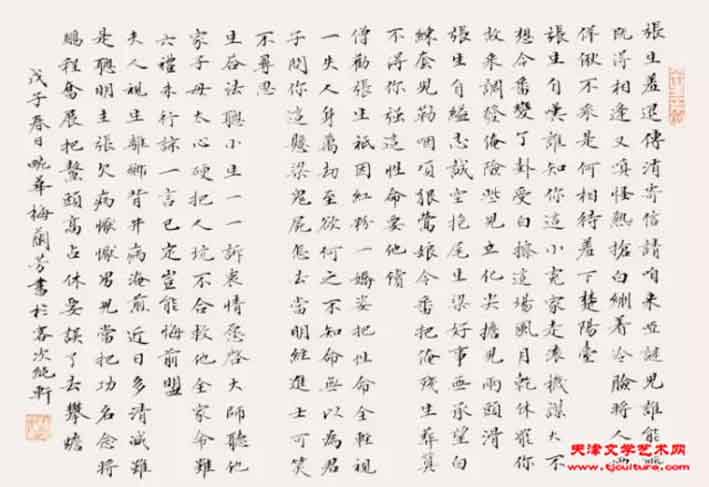 張生羞退傳消寄信請
既得相逢又嗔怪熱搶白綳着冷臉將人
僝僽不采是何相待羞下楚陽臺
張生自嘆誰知你這小冤家走表機謀大不
想今番變了卦受白擦這場風月乾休罷你
故來調發俺險些兒立化尖擔兒兩頭滑
張生自縊志誠空抱尾生梁好事無承望白
練套兒勒咽項狠鶯娘今番把俺殘生葬莫
不得你强這性命要他償
僧勸張生祇因紅粉一嬌姿把性命全輕視
一失人身萬劫至欲何之不知命無以為君
子問你這懸梁鬼屍怎去當明經進士可笑
不尋思
生告法聰小生一一訴衷情啓大師聽他
家子母太心硬把人坑不合救他全家命難
六禮未行諒一言已定豈能悔前盟
夫人視生離鄉背井病淹煎近日多清減難
是聰明主張欠病懨懨男兒當把功名念將
鵬程奮展把鰲頭高占休要誤了去攀蟾
戊子春日畹華梅蘭芳書於客次純軒
天津文学艺术网
www.tjculture.com